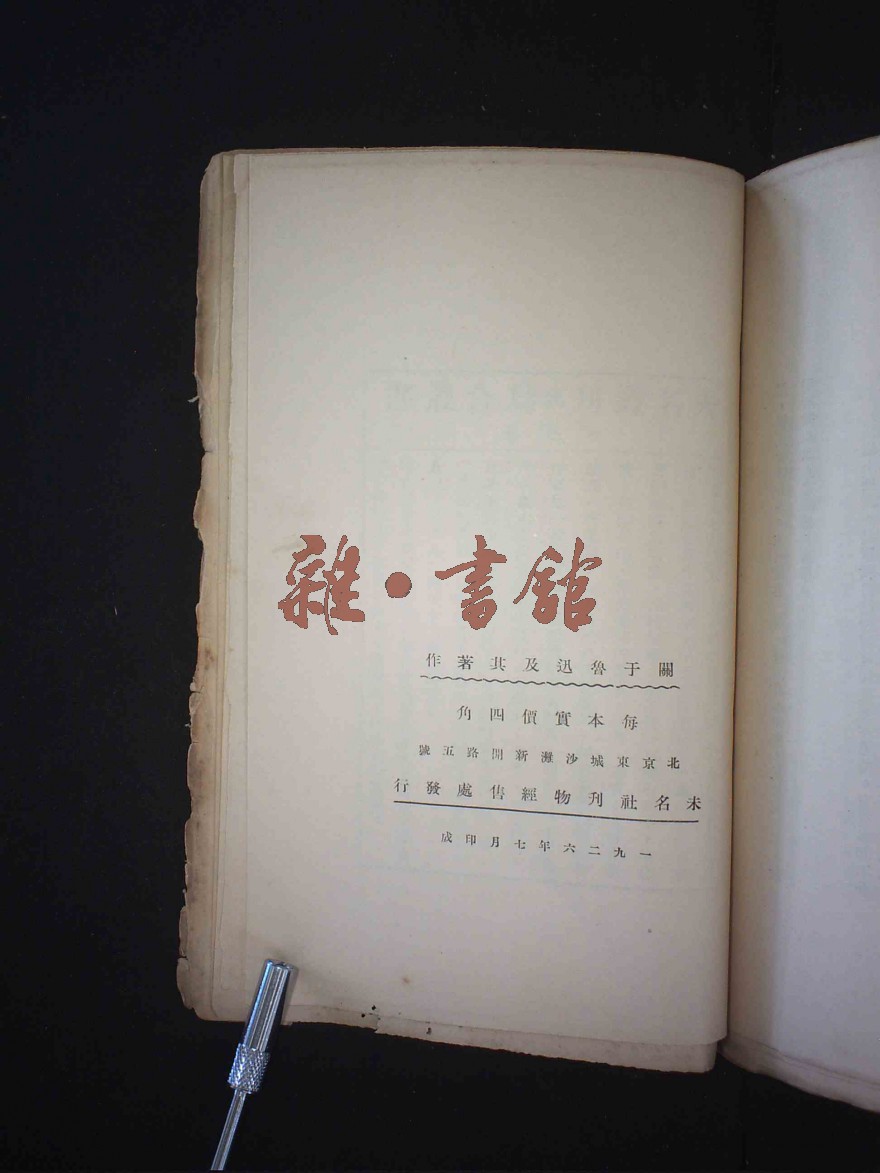 雜·書館
關于魯迅及其著作
每本實價四角
北京東城沙灘新開路五號
未名社刊物經售處發行
一九二六年七月印成